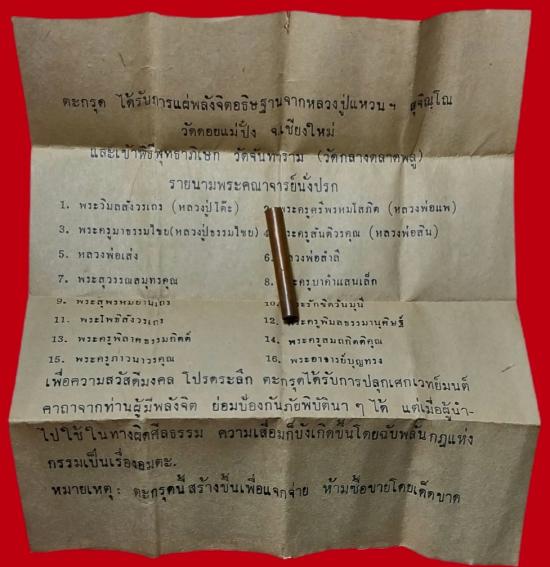 ตะกรุด ได้รับการแผ่พลังจิตอธิษฐานจากหลวงปู่แหวน ฯ สุจิณฺโณ
วัดดอยแม่ปั๋ง จ.เชียงใหม่
และเข้าพิธีพุทธาภิเษก วัดจันทาราม (วัดกลางตลาดพลู)
รายนามพระคณาจารย์นั่งปรก
1. พระวิมลสังวรเถร (หลวงปู่โต๊ะ) 2. พระครูศรีพรหมโสภิต (หลวงพ่อแพ)
3. พระครูมาธรรมไชย(หลวงปู่ธรรมไชย) 4. พระครูสันติวรคุณ (หลวงพ่อสิน)
5. หลวงพ่อเส่ง 6. หลวงพ่อลำลี
7. พระสุวรรณสมุทรคุณ 8. พระครูบาคำแสนเล็ก
9. พระสุพรหมยานเถร 10. พระรักขิตวันมุนี
11. พระโพธิสังวรเถร 12. พระครูพิมลธรรมานุศิษฐ์
13. พระครูพิลาศธรรมกิตติ์ 14. พระครูสมถกิตติคุณ
15. พระครูภาวนาวรคุณ 16. พระอาจารย์บุญทรง
เพื่อความสวัสดีมงคล โปรดระลึก ตะกรุดได้รับการปลุกเศกเวทย์มนต์
คาถาจากท่านผู้มีพลังจิต ย่อมป้องกันภัยพิบัตินา ๆ ได้ แต่เมื่อผู้นำ-
ไปใช้ในทางผิดศีลธรรม ความเสื่อมก็บังเกิดขึ้นโดยฉับพลันกฎแห่ง
กรรมเป็นเรื่องอมตะ.
หมายเหตุ : ตะกรุดนี้สร้างขึ้นเพื่อแจกจ่าย ห้ามซื้อขายโดยเด็ดขาด